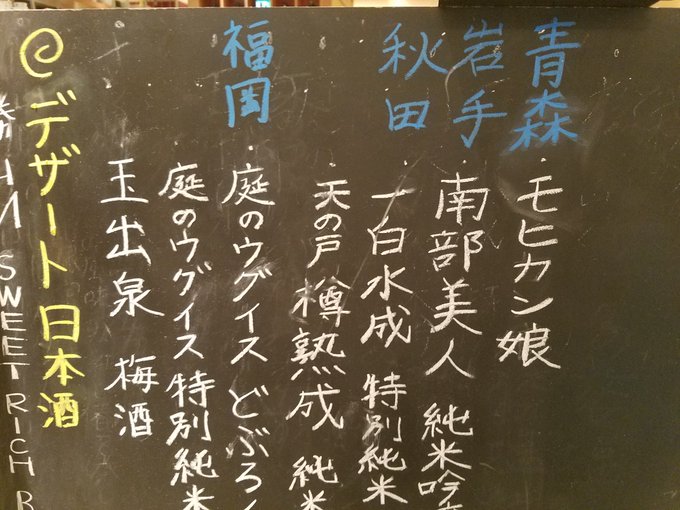 青森
モヒカン娘
岩手
南部美人 純米吟
秋田
一白水成 特別純米
天の戸 樽熟成 純米
福岡
庭のウグイス どぶろく
庭のウグイス 特別純米
玉出泉 梅酒
デザート日本酒
SWEET RICH